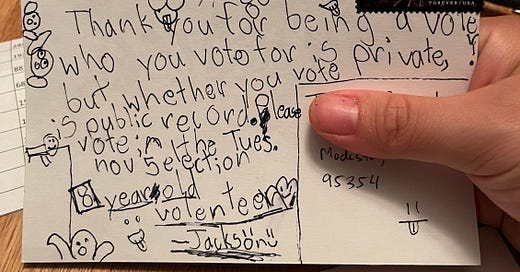 FOREVER/USA
Thank you for being a voter
who you vote for is private,
but whether you vote
is public record. Please
vote in the Tues.
nov 5 election
8 year old
volenteer
-Jackson
Modesto,
95354